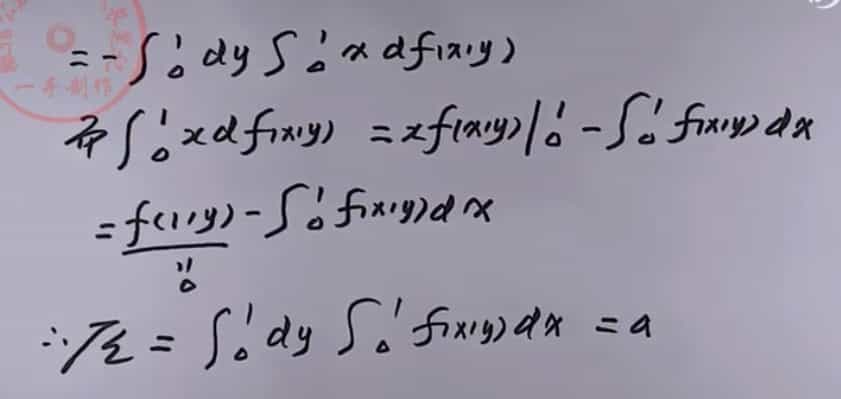 = -∫₀¹ dy ∫₀¹ x df(x,y)
而 ∫₀¹ x df(x,y) = xf(x,y)|₀¹ - ∫₀¹ f(x,y) dx
= f(1,y) - ∫₀¹ f(x,y) dx
0
∴ 原 = ∫₀¹ dy ∫₀¹ f(x,y) dx = a
一手制作